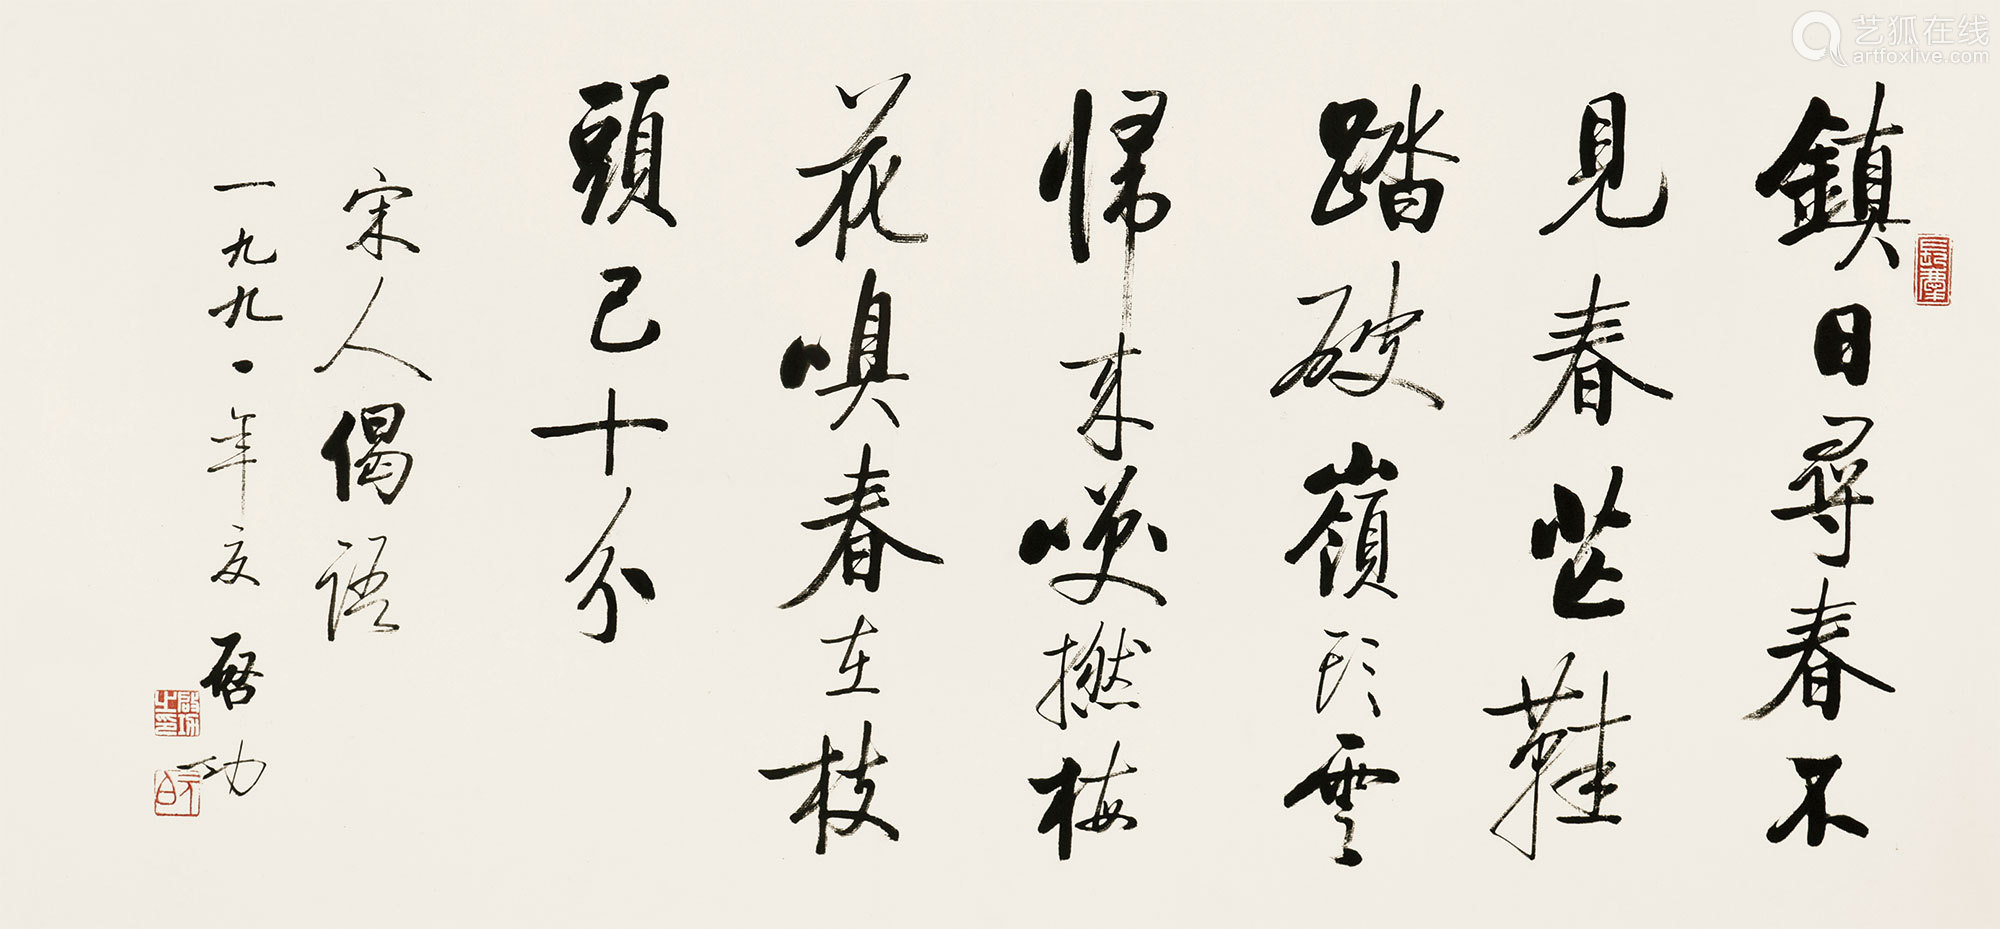 鎮日尋春不
見春芒鞋
踏破嶺頭雲
歸来嘆撚梅
花嗅春在枝
頭已十分
宋人偈語
一九九〇年夏
啓功
艺狐在线
artfoxlive.com